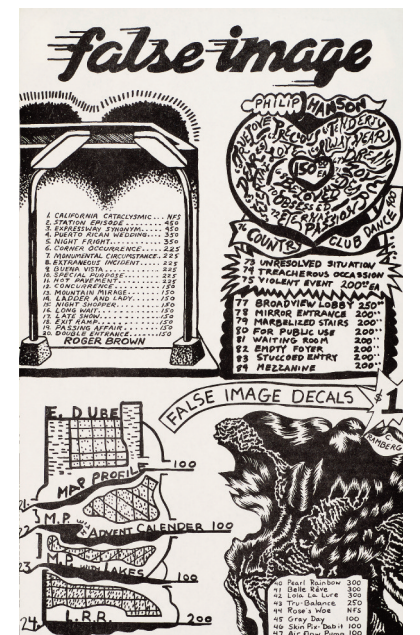 false image
1. CALIFORNIA CATACLYSMIC... NFS
2. STATION EPISODE......... 450
3. EXPRESSWAY SYNONYM.... 450
4. PUERTO RICAN WEDDING... 350
5. NIGHT FRIGHT............ 350
6. CORNER OCCURRENCE...... 225
7. MONUMENTAL CIRCUMSTANCE. 225
8. EXTRANEOUS INCIDENT..... 225
9. BUENA VISTA............. 225
10. SPECIAL PURPOSE......... 225
11. HOT PAVEMENT........... 225
12. CONCURRENCE............ 150
13. MOUNTAIN MIRAGE........ 150
14. LADDER AND LADY........ 150
15. NIGHT SHOPPER.......... 150
16. LONG WAIT.............. 150
17. LATE SHOW.............. 150
18. EXIT RAMP.............. 150
19. PASSING AFFAIR......... 150
20. DOUBLE ENTRANCE........ 150
ROGER BROWN
PHILIP HANSON
150 EA
COUNTRY CLUB DANCE
73 UNRESOLVED SITUATION
74 TREACHEROUS OCCASSION
75 VIOLENT EVENT 200 EA
77 BROADVIEW LOBBY 250
78 MIRROR ENTRANCE 200
79 MARBELIZED STAIRS 200
80 FOR PUBLIC USE 200
81 WAITING ROOM 200
82 EMPTY FOYER 200
83 STUCCOED ENTRY 200
84 MEZZANINE 200
FALSE IMAGE DECALS $1
E. DUBE
MAP PROFILE 100
M.P. ADVENT CALENDER 100
22
M.P. LAKES 100
23
24 L.R.R. 200
C. RAMBERG
40 Pearl Rainbow 300
41 Belle Rêve 300
42 Lola La Lure 300
43 Tru-Balance 250
44 Rose's Woe NFS
45 Gray Day 100
46 Skin Pix-Dab it 100
47 Air Flow Puma 100